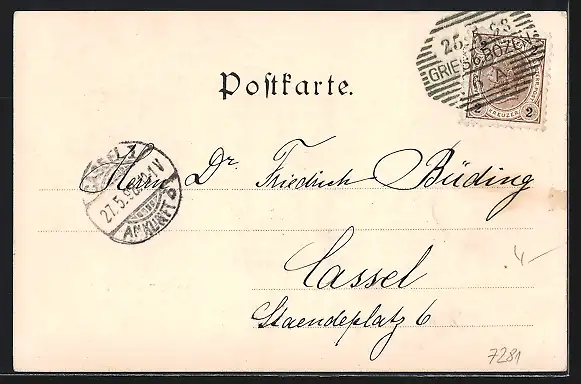 25.5.98
GRIES B. BOZEN
2 KREUZER 2
Postkarte.
CASSEL 1
27.5.98
ANKUNFT
Herrn Dr. Friedrich Büding
Cassel
Staendeplatz 6
7281